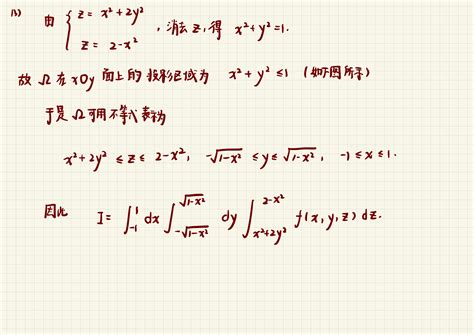 (3) 由 { z = x² + 2y²
z = 2 - x² , 消去 z, 得 x² + y² = 1.
故 Ω 在 xOy 面上的投影区域为 x² + y² ≤ 1 (如图所示)
于是 Ω 可用不等式表为
x² + 2y² ≤ z ≤ 2 - x², -√(1-x²) ≤ y ≤ √(1-x²), -1 ≤ x ≤ 1.
因此 I = ∫₋₁¹ dx ∫_{-√(1-x²)}^{√(1-x²)} dy ∫_{x²+2y²}^{2-x²} f(x, y, z) dz.